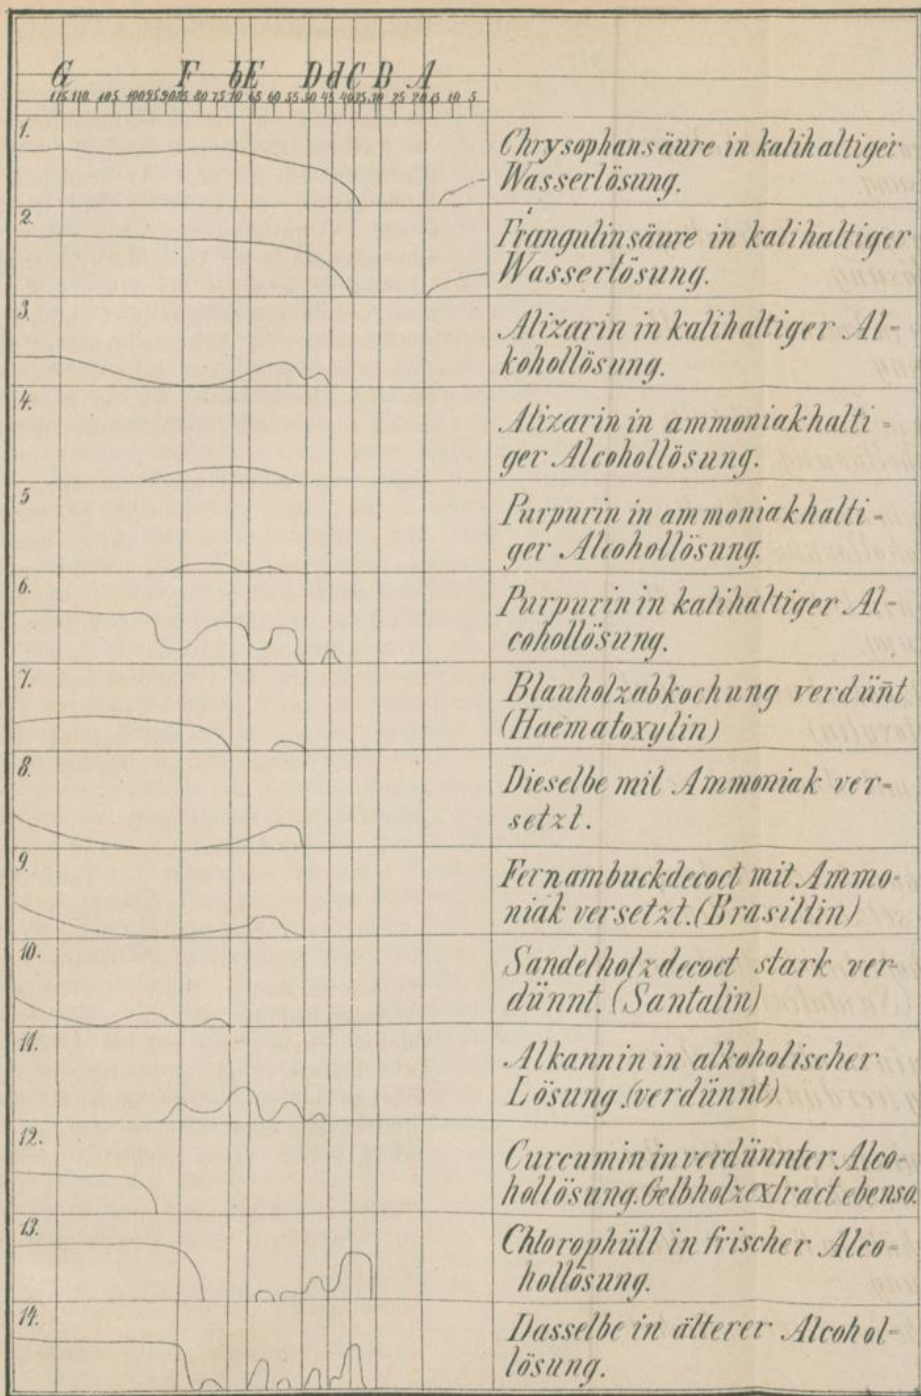 G F b E D d C B A
115 110 105 100 95 90 85 80 75 70 65 60 55 50 45 40 35 30 25 20 15 10 5
1.
Chrysophansäure in kalihaltiger
Wasserlösung.
2.
Frangulinsäure in kalihaltiger
Wasserlösung.
3.
Alizarin in kalihaltiger Al-
kohollösung.
4.
Alizarin in ammoniakhalti-
ger Alcohollösung.
5
Purpurin in ammoniakhalti-
ger Alcohollösung.
6.
Purpurin in kalihaltiger Al-
cohollösung.
7.
Blauholzabkochung verdün̄t
(Haematoxylin)
8.
Dieselbe mit Ammoniak ver-
setzt.
9.
Fernambuckdecoct mit Ammo-
niak versetzt. (Brasillin)
10.
Sandelholzdecoct stark ver-
dünnt. (Santalin)
11.
Alkannin in alkoholischer
Lösung (verdünnt)
12.
Curcumin in verdünnter Alco-
hollösung. Gelbholzextract ebenso.
13.
Chlorophüll in frischer Alco-
hollösung.
14.
Dasselbe in älterer Alcohol-
lösung.